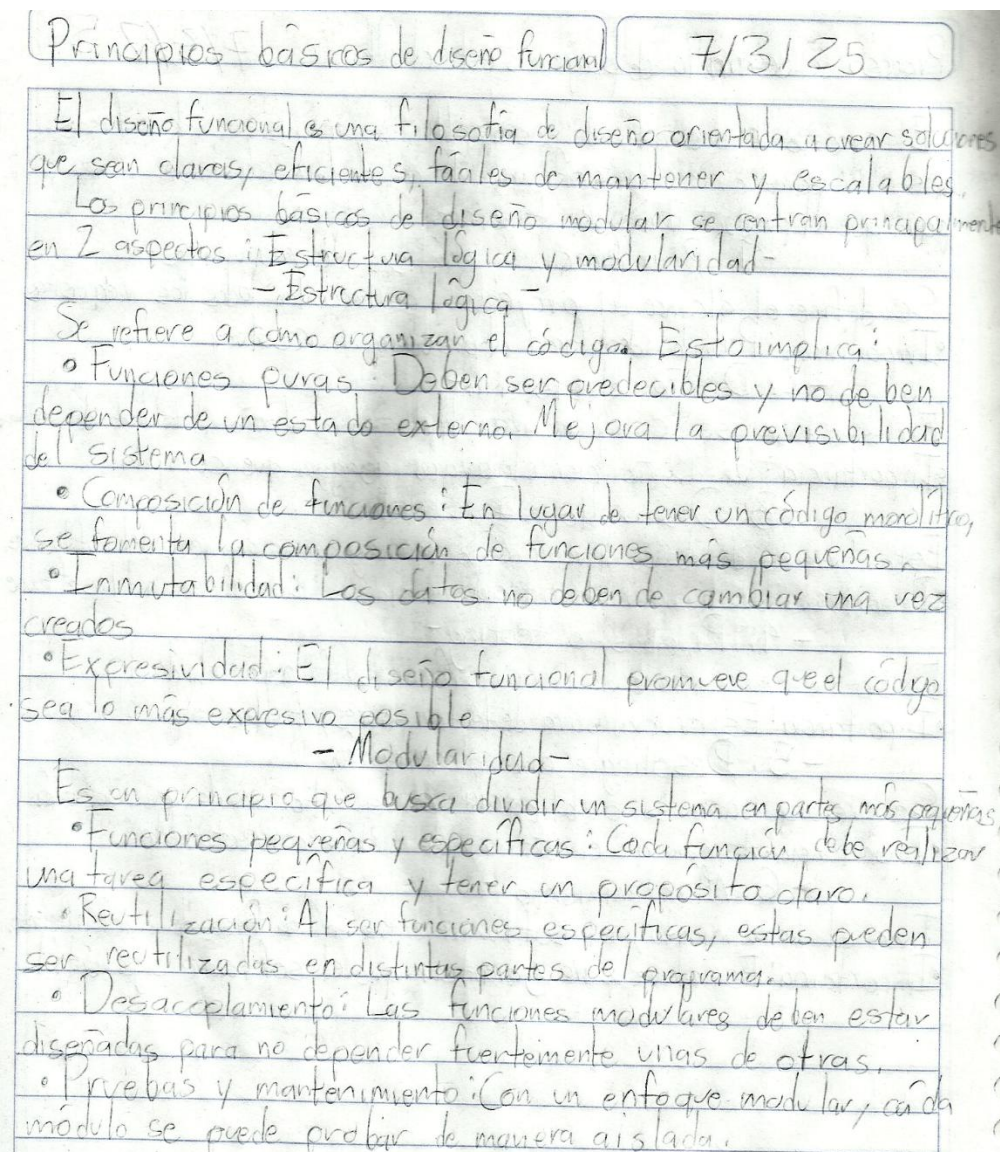 Principios básicos de diseño funcional 7/3/25
El diseño funcional es una filosofía de diseño orientada a crear soluciones
que sean claras, eficientes, fáciles de mantener y escalables.
Los principios básicos del diseño modular se centran principalmente
en 2 aspectos: Estructura lógica y modularidad-
- Estructura lógica -
Se refiere a cómo organizan el código. Esto implica:
• Funciones puras: Deben ser predecibles y no deben
depender de un estado externo. Mejora la previsibilidad
del sistema
• Composición de funciones: En lugar de tener un código monolítico,
se fomenta la composición de funciones más pequeñas.
• Inmutabilidad: Los datos no deben de cambiar una vez
creados
• Expresividad: El diseño funcional promueve que el código
sea lo más expresivo posible
- Modularidad -
Es un principio que busca dividir un sistema en partes más pequeñas.
• Funciones pequeñas y específicas: Cada función debe realizar
una tarea específica y tener un propósito claro.
• Reutilización: Al ser funciones específicas, estas pueden
ser reutilizadas en distintas partes del programa.
• Desacoplamiento: Las funciones modulares deben estar
diseñadas para no depender fuertemente unas de otras.
• Pruebas y mantenimiento: Con un enfoque modular, cada
módulo se puede probar de manera aislada.